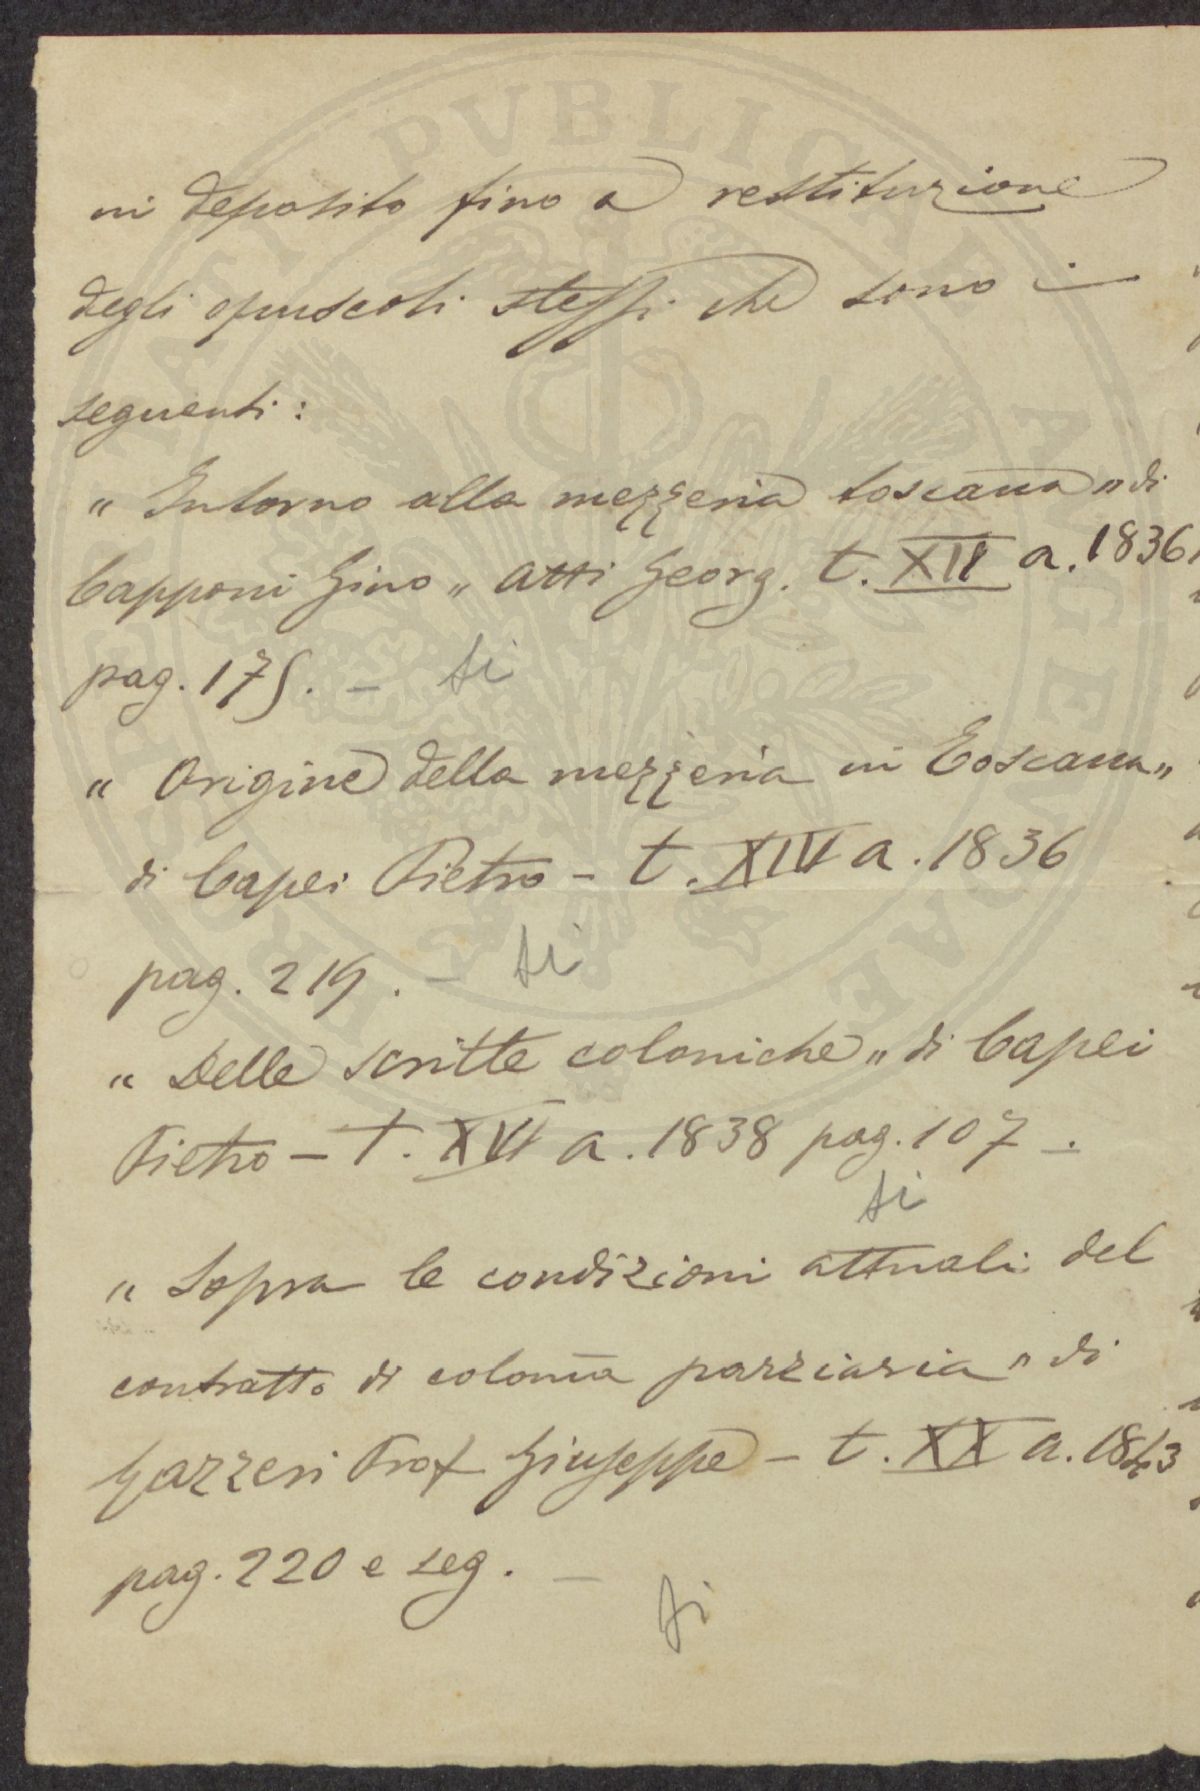 in deposito fino a restituzione
degli opuscoli stessi che sono i
seguenti:
„ Intorno alla mezzeria toscana „ di
Capponi Gino „ Atti Georg. t. XII a. 1836
pag. 175. – si
„ Origine della mezzeria in Toscana „
di Capei Pietro – t. XIV a. 1836
pag. 219. – si
„ Delle scritte coloniche „ di Capei
Pietro – T. XVI a. 1838 pag. 107 –.
si
„ Sopra le condizioni attuali del
contratto di colonia parziaria „ di
Gazzeri Prof Giuseppe – t. XX a. 1843
pag. 220 e seg. –
si